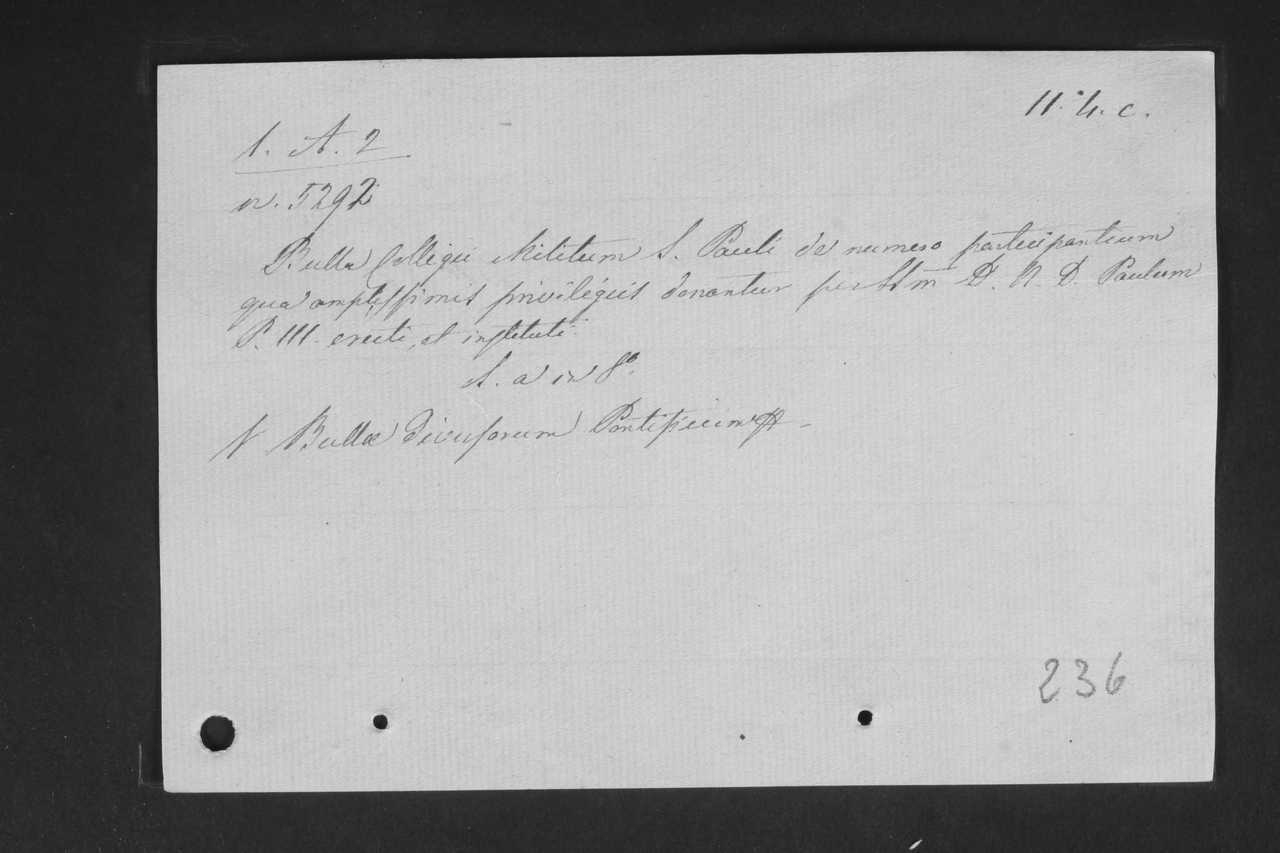 11. 4. c.
1. A. 2
n. 5292
Bulla Collegii Militum S. Pauli de numero participantium
qua amplissimis privilegiis donantur per SSm D. N. D. Paulum
P. III. erecti, et instituti.
S. a in 8°.
V Bullae diversorum Pontificum
236